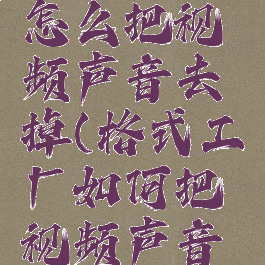 怎么把视
频声音去
掉(格式工
厂如何把
视频声音